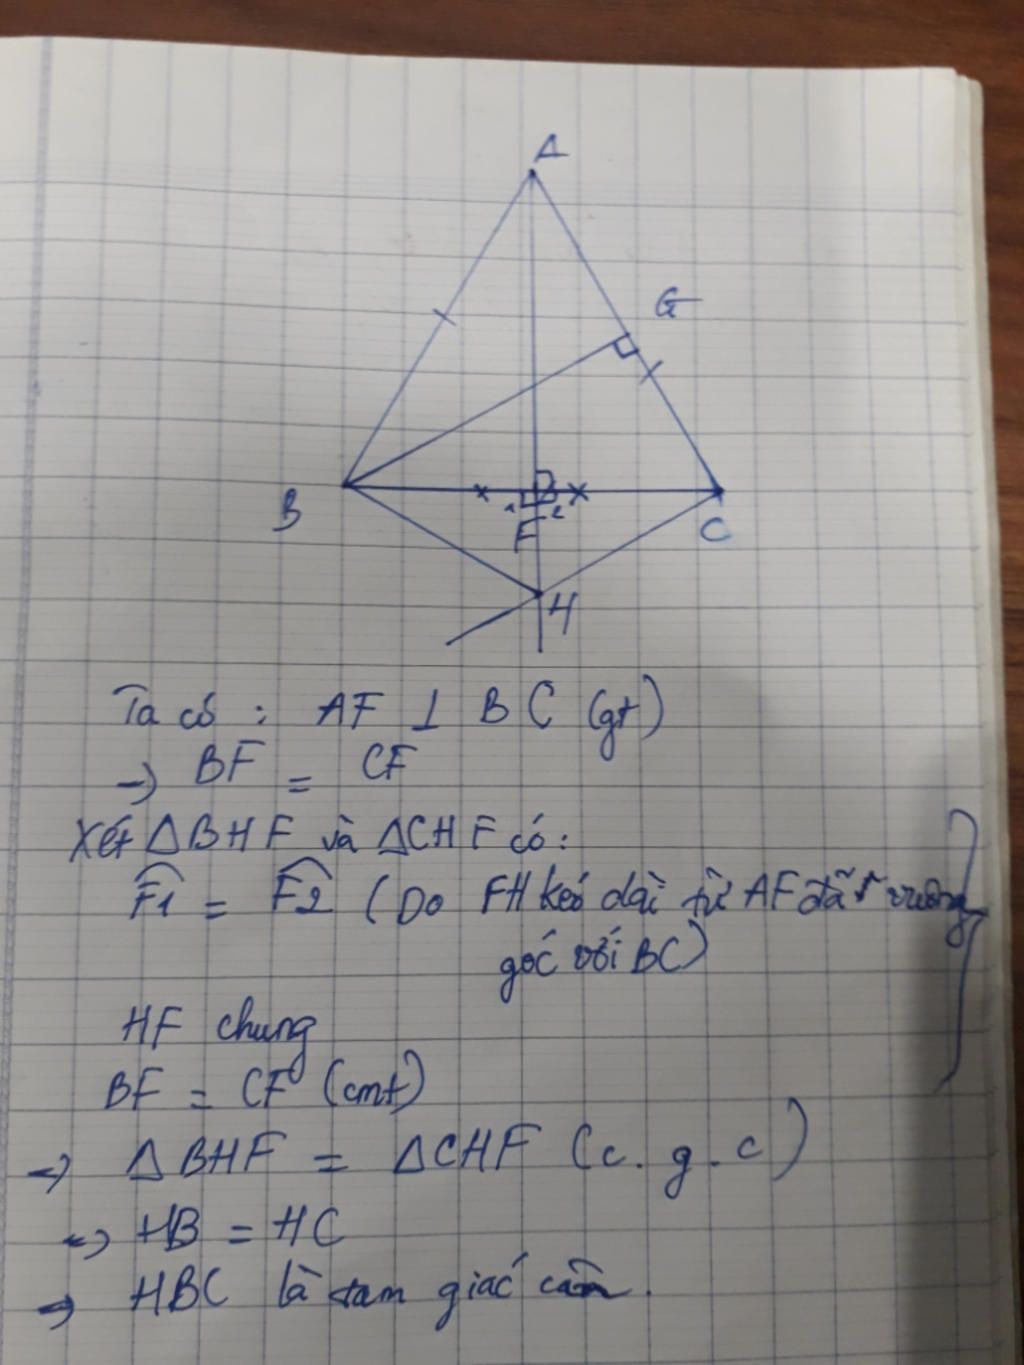 A
G
B
1 2
F
C
H
Ta có : AF ⊥ BC (gt)
→ BF = CF
Xét △BHF và △CHF có:
F1 = F2 (Do FH kéo dài từ AF đã vuông
góc với BC)
HF chung
BF = CF (cmt)
→ △BHF = △CHF (c.g.c)
→ HB = HC
→ HBC là tam giác cân.